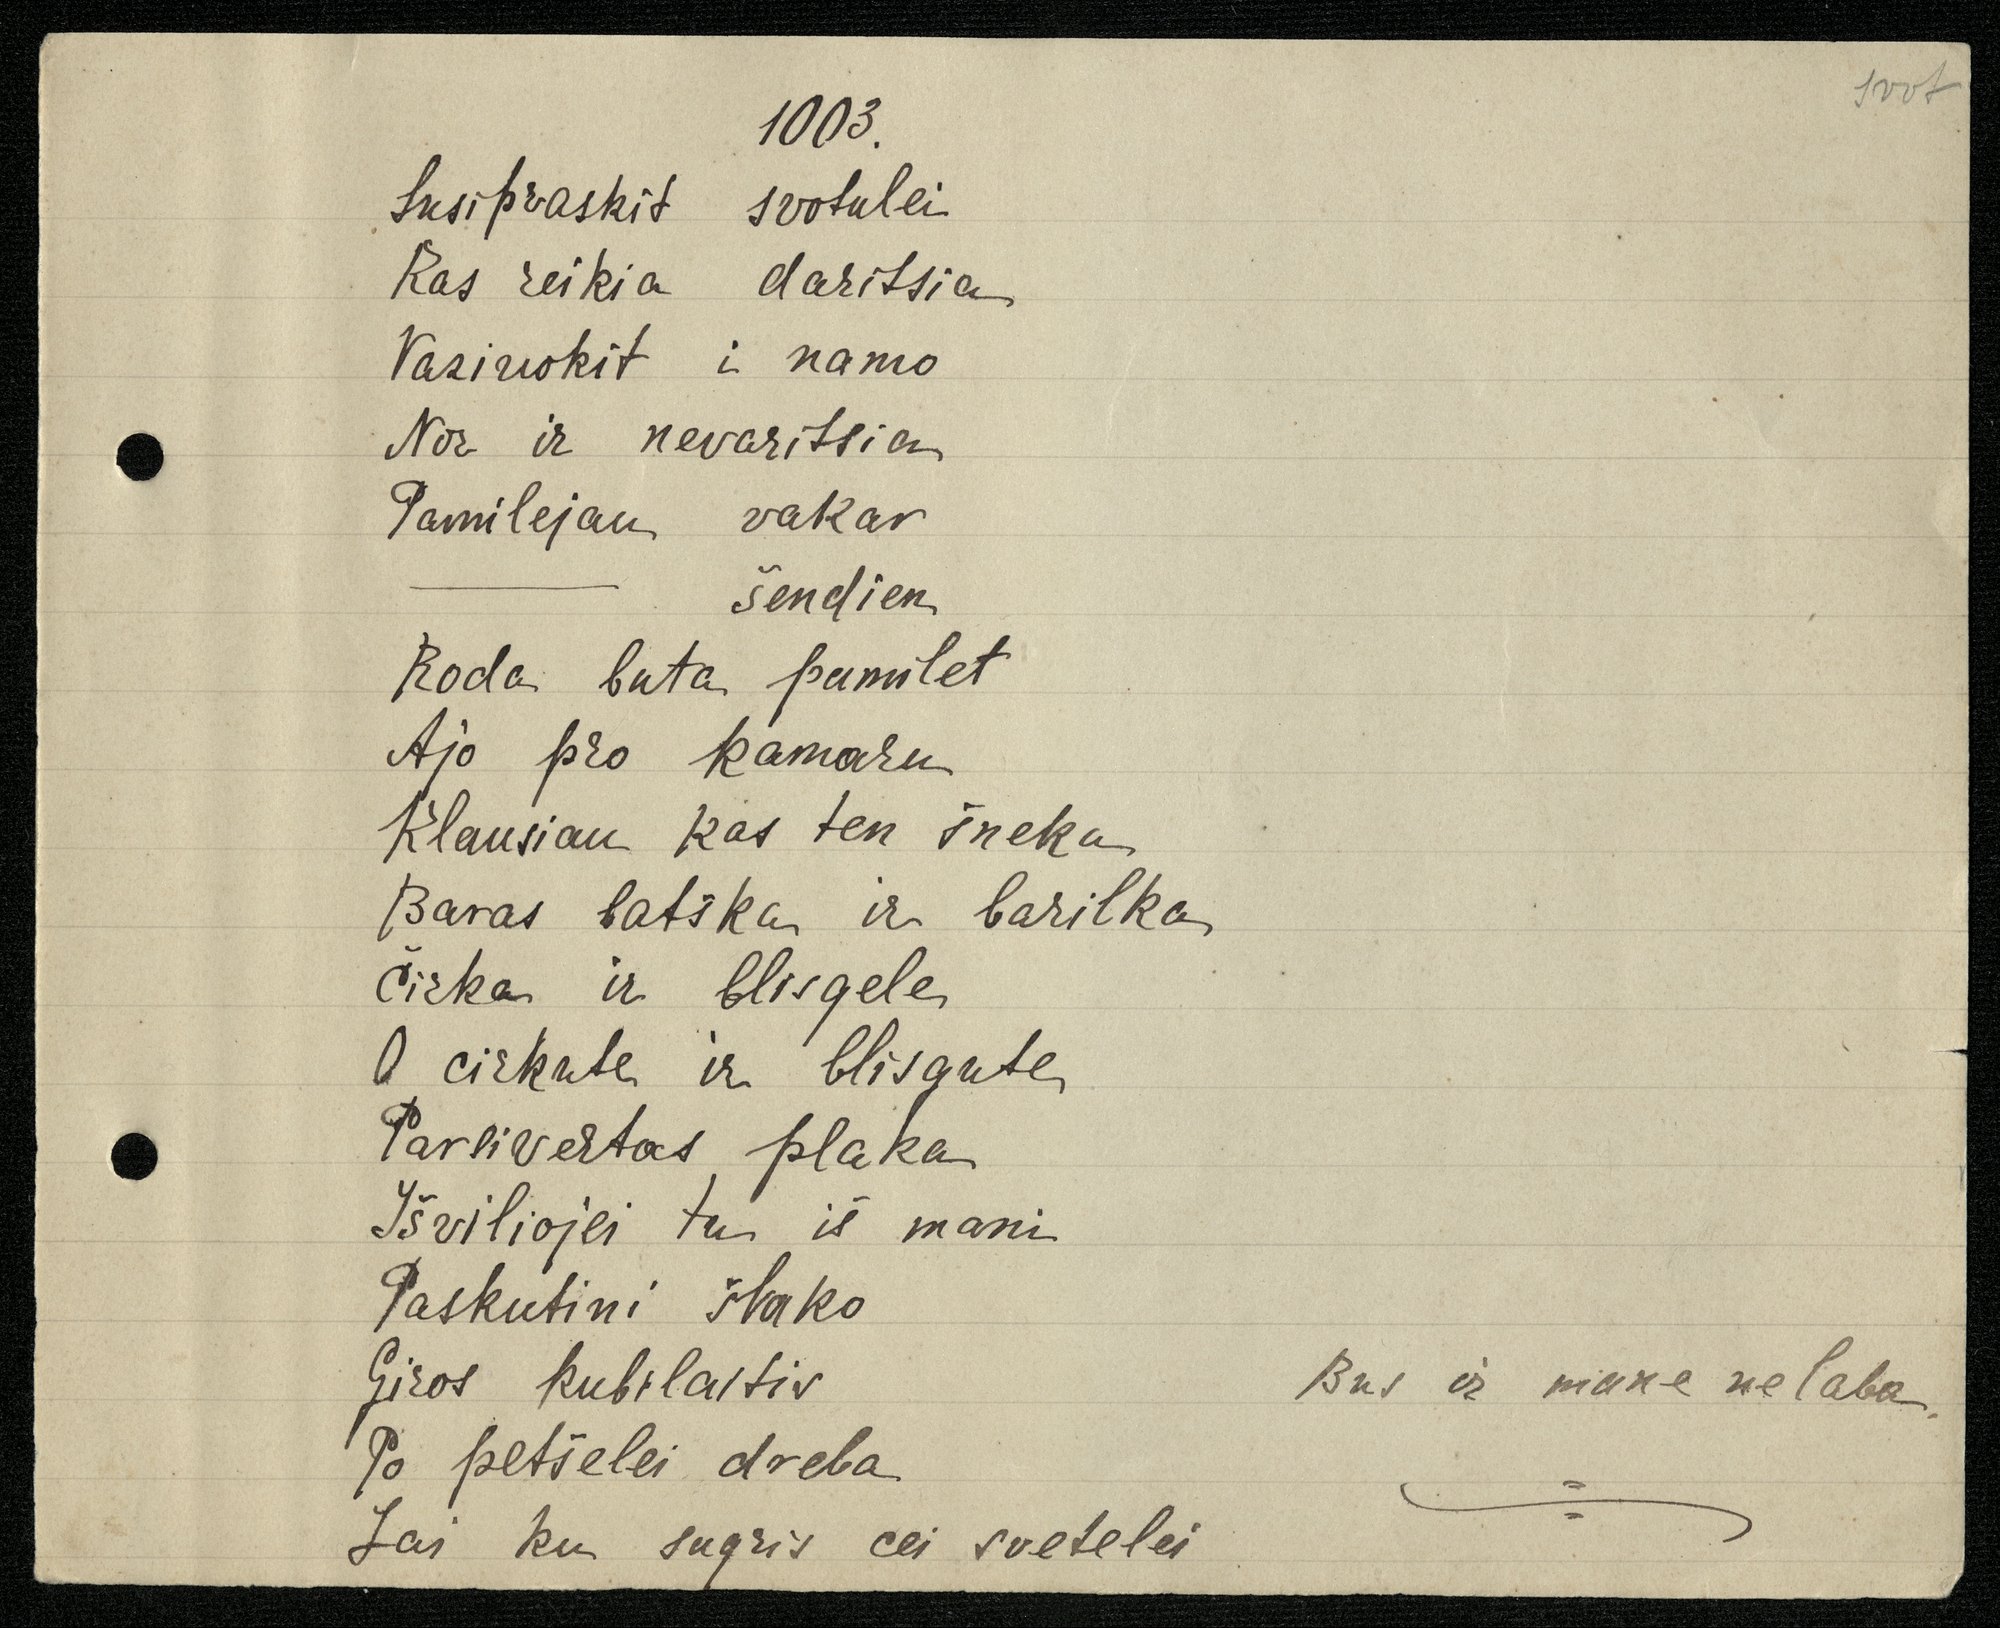 svot
1003.
Susipraskit svotulei
Kas reikia daritsia
Vaziuokit i namo
Nor ir nevaritsia
Pamilejau vakar
——— šendien
Roda buta pamilet
Ajo pro kamaru
Klausiau kas ten šneka
Baras batška ir barilka
Čirka ir blisgele
O cirkute ir blisgute
Parsivertas plaka
Išviliojei tu iš mani
Paskutini šlako
Giros kubilaitis
Po petšelei dreba
Lai ku sugris cei svetelei
Bus ir mane nelaba.